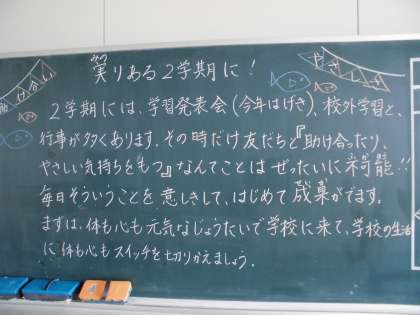 実りある2学期に!
みの
助け合い
やさしさ
2学期には、学習発表会(今年はげき)、校外学習と、
行事が多くあります。その時だけ友だちと『助け合ったり、
やさしい気持ちをもつ』なんてことはぜったいに不可能!!
毎日そういうことを意しきして、はじめて成果がでます。
まずは、体も心も元気なじょうたいで学校に来て、学校の生活
に体も心もスイッチを切りかえましょう。